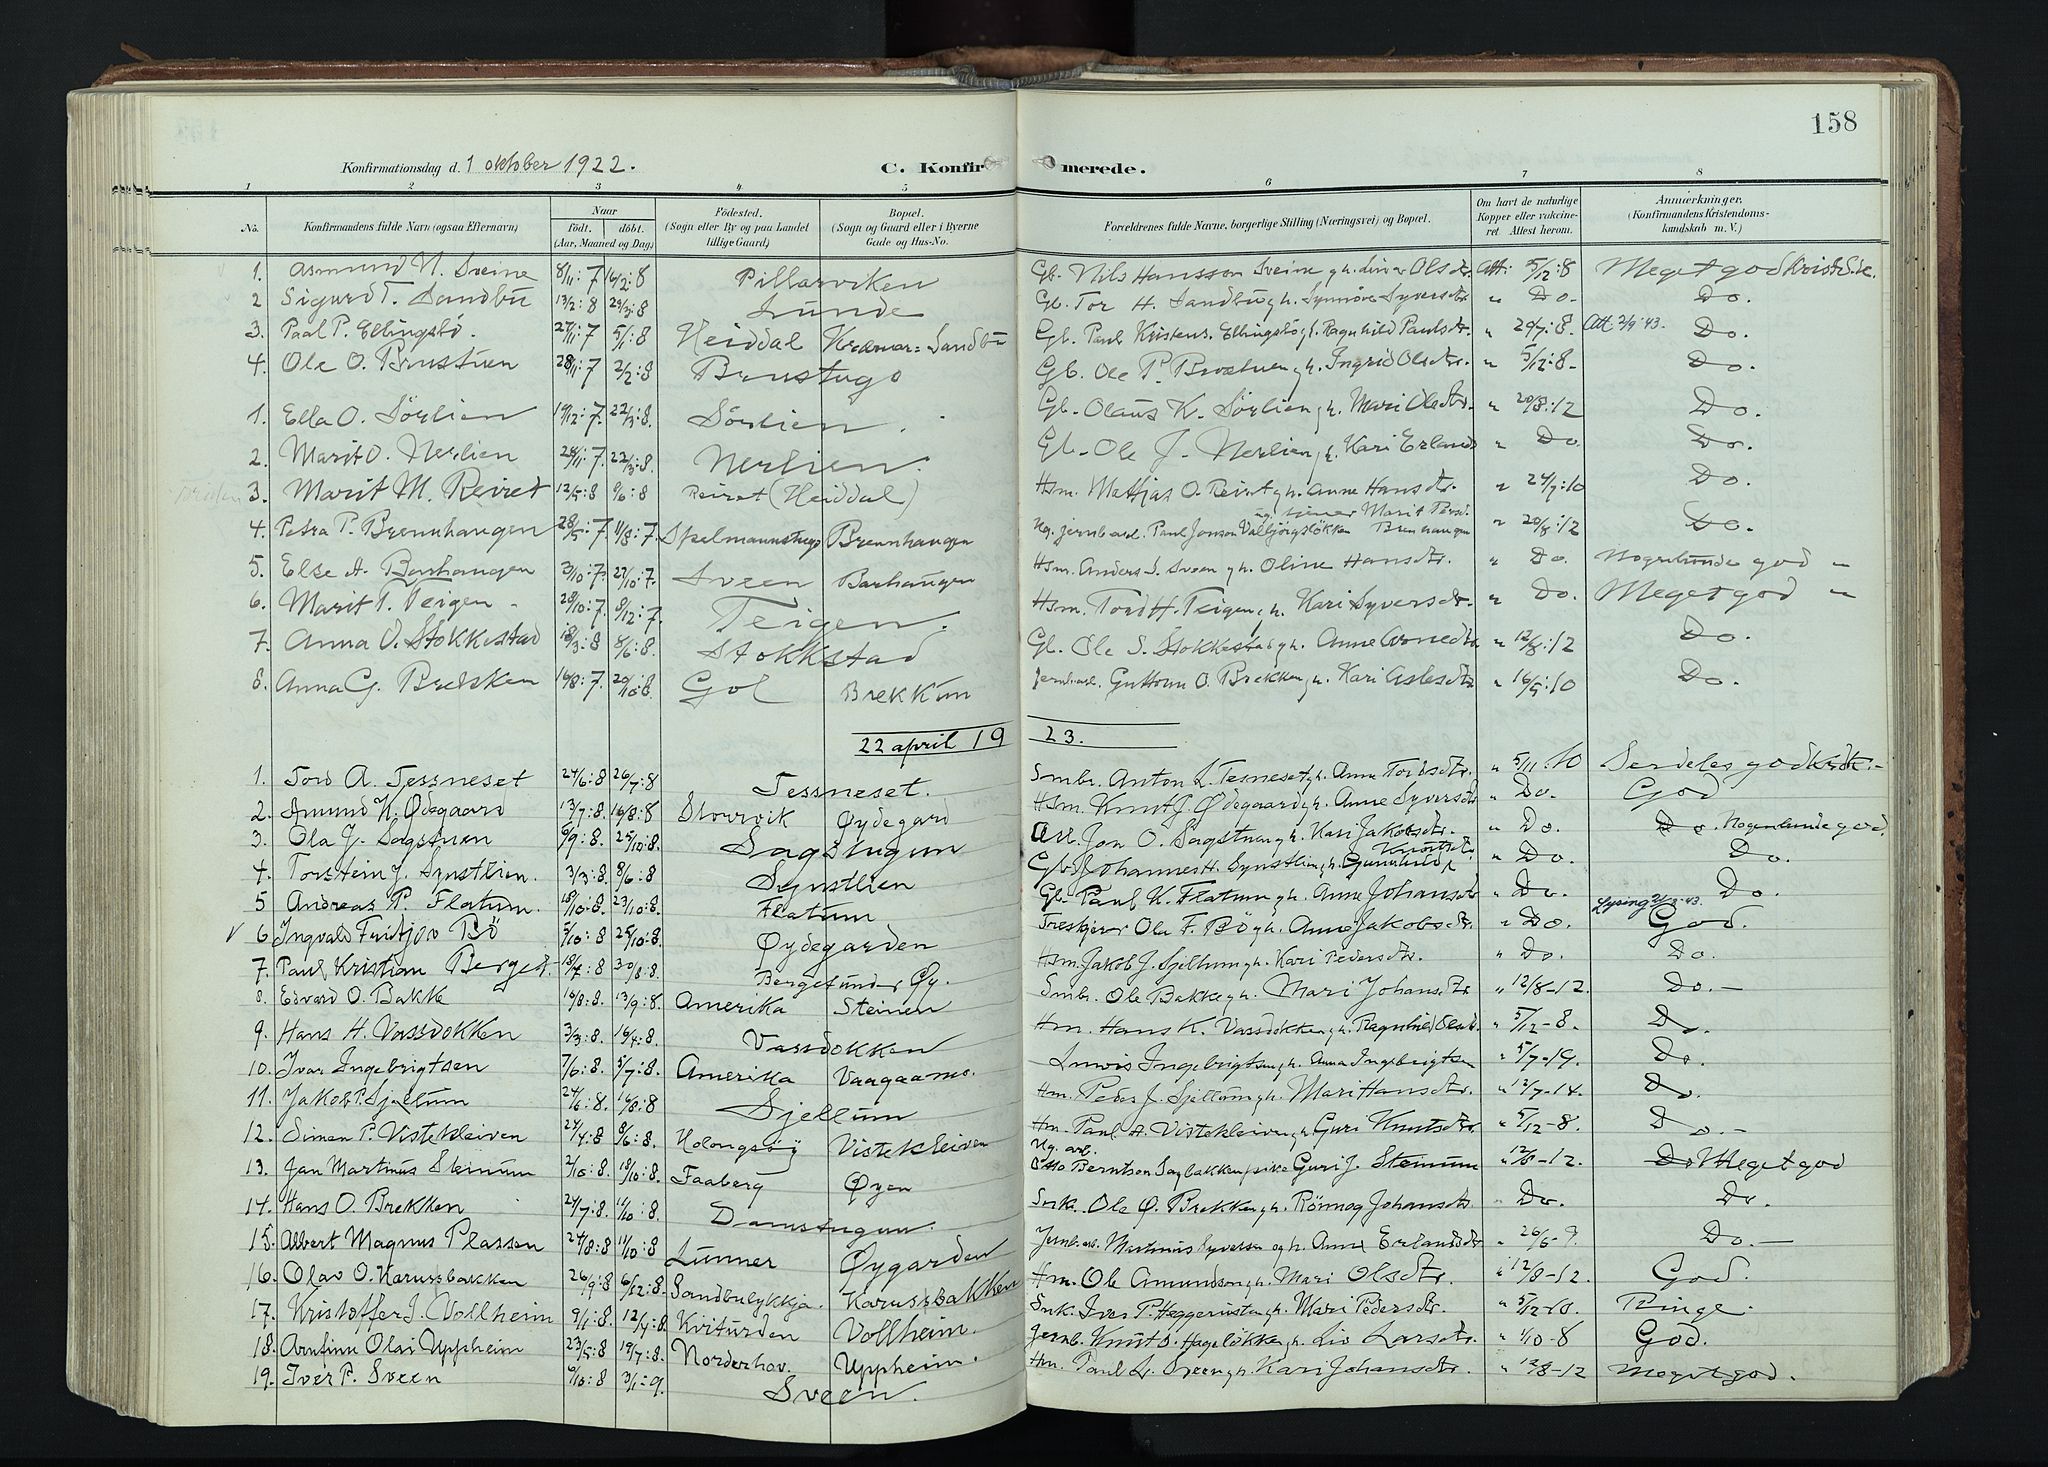 158
Konfirmationsdag d. 1 oktober 1922.
C. Konfirmerede.
1 2 3 4 5 6 7 8
No.
Konfirmandens fulde Navn (ogsaa Efternavn)
Naar
födt. döbt.
(Aar, Maaned og Dag)
Födested.
(Sogn eller By og paa Landet tillige Gaard)
Bopæl.
(Sogn og Gaard eller i Byerne Gade og Hus-No.
Forældrenes fulde Navne, borgerlige Stilling (Næringsvei) og Bopæl.
Om havt de naturlige Kopper eller vaccineret Attest herom.
Anmærkninger.
(Konfirmandens Kristendomskundskab m. V.)
1. Asmund N. Sveine 8/11:7 16/2:8 Pillarviken Gb. Nils Hansson Sveine g.h. Olsdtr. Att: 5/12:8 Meget god
2 Sigurd T. Sandbu 13/2:8 29/3:8 Lunde Gb. Tor H. Sandbu g.h. Synnöve Syversdtr " Do. Do.
3. Paal P. Ellingsbö. 27/11:7 5/1:8 Heiddal Sandbu Gb. Paul Kristens. Ellingsbö g.h. Ragnhild Paulsdtr. " 20/7:8. Att. 2/9 43. Do.
4. Ole O. Brustuen 28/11:7 2/2:8 Brustugo Gb. Ole P. Brustuen g.h. Ingrid Olsdtr. " 5/12:8 Do.
1. Ella O. Sörlien 19/12:7. 22/3:8. Sörlien. Gb. Olaus K. Sörlien g.h. Mari Olsdtr. " 20/8:12 Do.
2. Marit O. Nerlien 28/11:7. 22/3:8. Nerlien. Gb. Ole J. Nerlien g.h. Kari Erlandsd. " Do. Do.
3. Marit M. Reiret 12/5:8 9/6:8 Reiret (Heiddal) Hsm. Mattjas O. Reiret g.h. Anne Hansdtr. " 24/7:10 Do.
4. Petra P. Brennhaugen 28/5:7. 11/8:7. Spelmannstugo Brennhaugen Ug. jernb.arb. Paul Jonson Valbjörgsløkken Marit Persd. Brennhaugen " 20/8:12 Do.
5. Else A. Barhaugen 3/10:7. 27/10:7. Sveen Barhaugen Hsm. Anders S. Sveen g.h. Oline Hansdtr. " Do. Nogenlunde god
6. Marit T. Teigen 28/10:7. 8/12:7. Teigen. Hsm. Tord H. Teigen g.h. Kari Syversdtr. " Do. Meget god "
7. Anna O. Stokkestad 18/3:8 8/6:8. Stokkstad Gb. Ole S. Stokkestad g.h. Anne " 12/8:12 Do.
8. Anna G. Brekken 16/8:7. 20/10:8. Gol Brekkun Jernb.arb. Guttorm O. Brekken g.h. Kari Aslesdtr " 16/9:10 Do.
22 april 1923.
1. Tord A. Tessneset 24/6:8 26/7:8 Tessneset. Smbr. Anton L. Tesneset g.h. Anne Tordsdtr. " 5/11:10 Serdeles god
2. Amund K. Ødegaard 13/7:8. 16/8:8 Storvik Øydegard Hsm. Knut J. Ødegaard g.h. Anne Syversdtr " Do. God
3. Ola J. Sagstuen 6/9:8. 25/10:8. Sagstugun Arb. Jon O. Sagstuen g.h. Kari Jakobsdtr. " Do. Do. Nogenlunde god.
4. Torstein J. Synstlien. 3/3:8. 8/6:8 Synstlien Gb. Johannes H. Synstlien g.h. Gunhild Knutsd. " Do. Do.
5 Andreas P. Flatum. 18/10:8. 23/10:8. Flatum Gb. Paul K. Flatum g.h. Anne Johansdtr " Do. Do.
6. Ingvald Fritjov Bö 5/10:8 25/10:8. Øydegarden Ole F. Bö g.h. Anne Jakobsdtr. " Do. Lysing 43. God.
7. Paul Kristian Berget. 18/7:8 30/8:8. Berget under Øy. Hsm. Jakob J. Sjellum g.h. Kari Pedersdtr. " Do. Do.
8. Edvard O. Bakke 16/8:8. 13/9:8 Amerika Steinen Smbr. Ole Bakke g.h. Mari Johansdtr " 12/8-12. Do.-
9. Hans H. Vassdokken 3/3:8. 16/4:8. Vassdokken Hm. Hans K. Vassdokken g.h. Ragnhild Olsd. " 5/12-8. Do.
10. Ivar Ingebrigtsen 7/6:8. 5/7:8. Amerika Vaagaamo. Ingebrigtsen g.h. Anna Ingebrigtsen " 5/7-19. Do.
11. Jakob P. Sjellum 24/6:8. 16/8:8 Sjellum Hm. Peder J. Sjellum g.h. Mari Hansdtr. " 12/7-14. Do.
12. Simen P. Vistekleiven 24/4:8 8/6:8. Holongsöy Vistekleiven Hm. Paul A. Vistekleiven g.h. Guri Knutsdtr. " 5/12-8. Do.-
13. Jan Martinus Steinum 2/10:8 18/10:8. Faaberg Øyen Ug. arb. Otto Berntson Sagbakken pike Guri J. Steinum " 12/8-12. Do Meget god
14. Hans O. Brekken 24/7:8. 11/10:8. Damstugun. Smbr. Ole Ø. Brekken g.h. Rönnog Johansdtr. " Do. Do.
15. Albert Magnus Plassen 24/8:8 11/10:8 Lunner Øygarden Jernb.arb. Martinus Syversen og h. Anne Erlandsdtr " 26/6-9. Do.-
16. Olav O. Karussbakken 26/9:8 6/12:8. Sandbulykkja. Karussbakken Hm. Ole Amundson g.h. Mari Olsdtr. " 12/8-12. God.
17. Kristoffer I. Vollheim 9/1:8. 12/4:8. Kviturden Vollheim. Iver P. Heggerusten g.h. Mari Pedersdtr. " 5/12-10. Ringe.
18. Arnfinn Olai Uppheim 23/5:8 19/7:8. Norderhov. Uppheim. Jernb. Knut O. Hagelökken g.h. Liv Larsdtr. " 1/10-8 God.
19. Iver P. Sveen 9/10:8 3/1:9. Sveen. Hm. Paul L. Sveen g.h. Kari Johansdtr. " 12/8-12 Meget god.